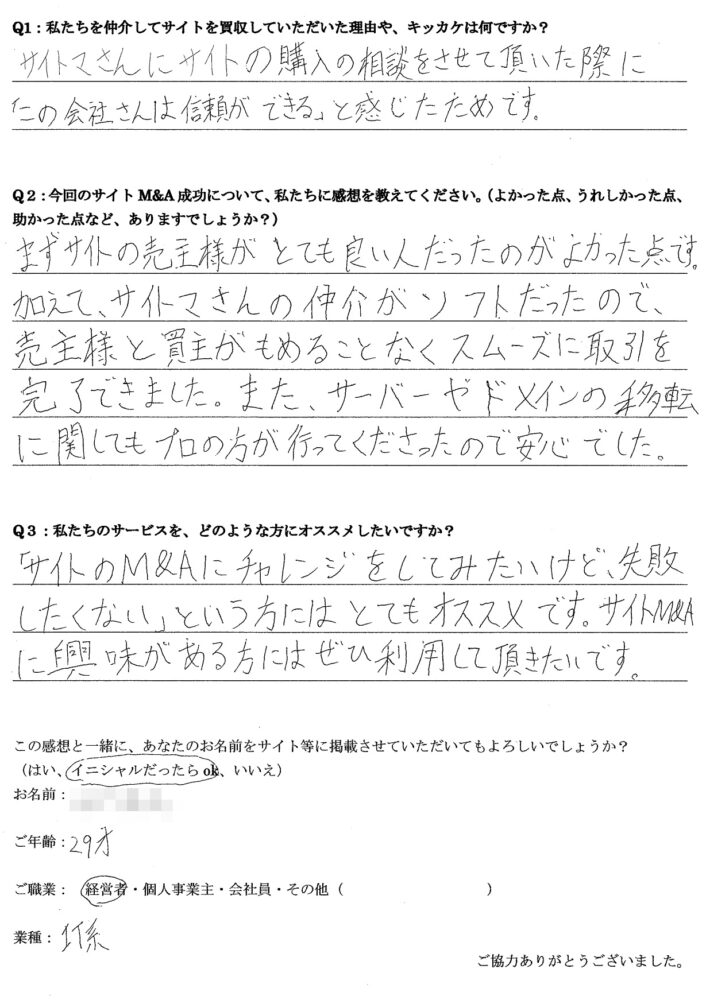 Q1：私たちを仲介してサイトを買収していただいた理由や、キッカケは何ですか？
サイトマさんにサイトの購入の相談をさせて頂いた際に
「この会社さんは信頼ができる」と感じたためです。
Q2：今回のサイト M&A 成功について、私たちに感想を教えてください。（よかった点、うれしかった点、
助かった点など、ありますでしょうか？）
まずサイトの売主様がとても良い人だったのがよかった点です。
加えて、サイトマさんの仲介がソフトだったので、
売主様と買主がもめることなくスムーズに取引を
完了できました。また、サーバーやドメインの移転
に関してもプロの方が行ってくださったので安心でした。
Q3：私たちのサービスを、どのような方にオススメしたいですか？
「サイトのM&Aにチャレンジをしてみたいけど、失敗
したくない」という方にはとてもオススメです。サイトM&A
に興味がある方にはぜひ利用して頂きたいです。
この感想と一緒に、あなたのお名前をサイト等に掲載させていただいてもよろしいでしょうか？
（はい、イニシャルだったら ok、いいえ）
お名前：
ご年齢：29才
ご職業： 経営者・個人事業主・会社員・その他（ ）
業種：IT系
ご協力ありがとうございました。